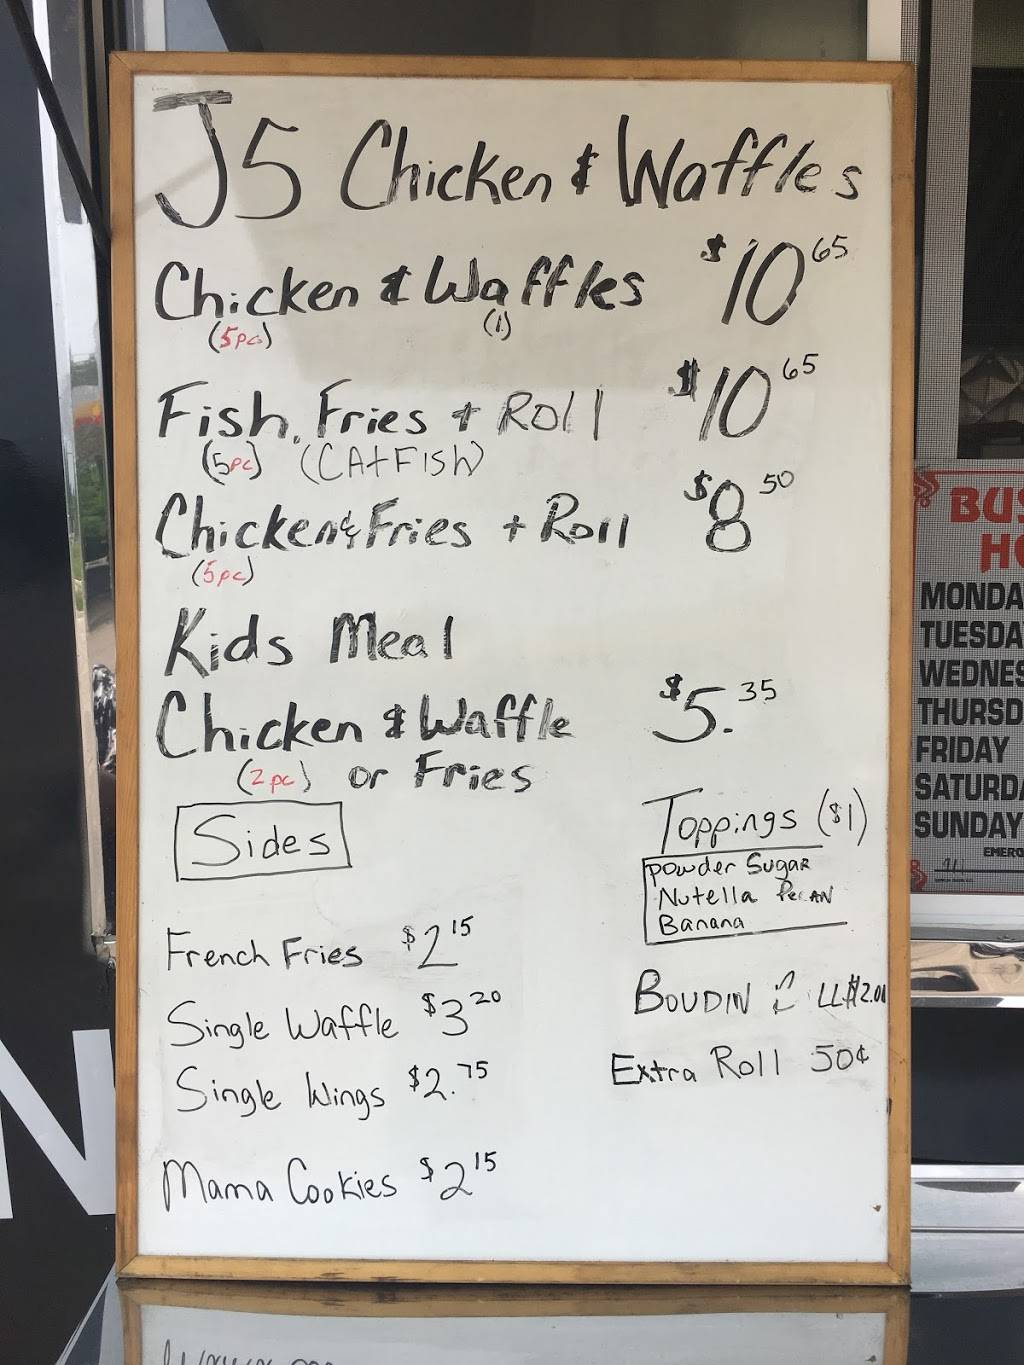 J5 Chicken & Waffles
Chicken & Waffles $10 65
(5pc) (1)
Fish, Fries + Roll $10 65
(5pc) (CAtFISH)
Chicken & Fries + Roll $8 50
(5pc)
Kids Meal
Chicken & Waffle $5.35
(2pc) or Fries
Sides
Toppings ($1)
Powder Sugar
Nutella PecAN
Banana
French Fries $2 15
Single Waffle $3 20
Single Wings $2.75
Mama Cookies $2 15
BOUDIN $2.00
Extra Roll 50¢
BUS
HO
MONDA
TUESDA
WEDNES
THURSD
FRIDAY
SATURDA
SUNDAY
EMERG